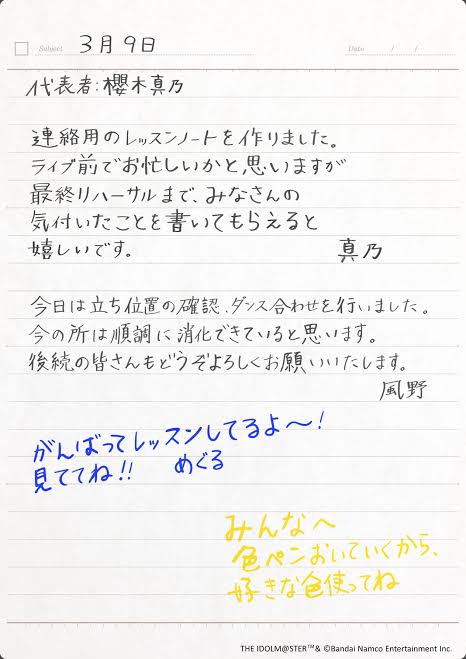 Subject 3月9日 Date / /
代表者:櫻木真乃
連絡用のレッスンノートを作りました。
ライブ前でお忙しいかと、思いますが
最終リハーサルまで、みなさんの
気付いたことを書いてもらえると
嬉しいです。 真乃
今日は立ち位置の確認、ダンス合わせを行いました。
今の所は順調に消化できていると思います。
後続の皆さんもどうぞよろしくお願いいたします。
風野
がんばってレッスンしてるよ〜!
見ててね!! めぐる
みんなへ
色ペンおいていくから、
好きな色使ってね
THE IDOLM@STER™& ©Bandai Namco Entertainment Inc.